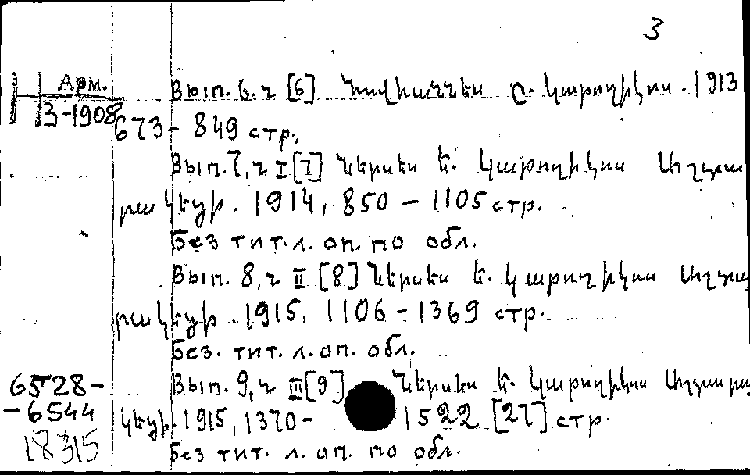 3
Арм.
3-1908
Вып. 6. г [6] Յովհաննէս Ը. Կաթողիկոս. 1913
673 - 849 стр.
Вып. 7, г I [7] Ներսես Ե. Կաթողիկոս Աշտա
րակեցի. 1914, 850 - 1105 стр.
Без тит. л. оп. по обл.
Вып. 8, г II [8] Ներսես Ե. Կաթողիկոս Աշտա
րակեցի. 1915, 1106 - 1369 стр.
Без. тит. л. оп. обл.
6528-
Вып. 9, г III [9] Ներսես Ե. Կաթողիկոս Աշտարա
-6544
կեցի. 1915, 1370 - 1522 [27] стр.
18315
Без тит. л. оп. по обл.